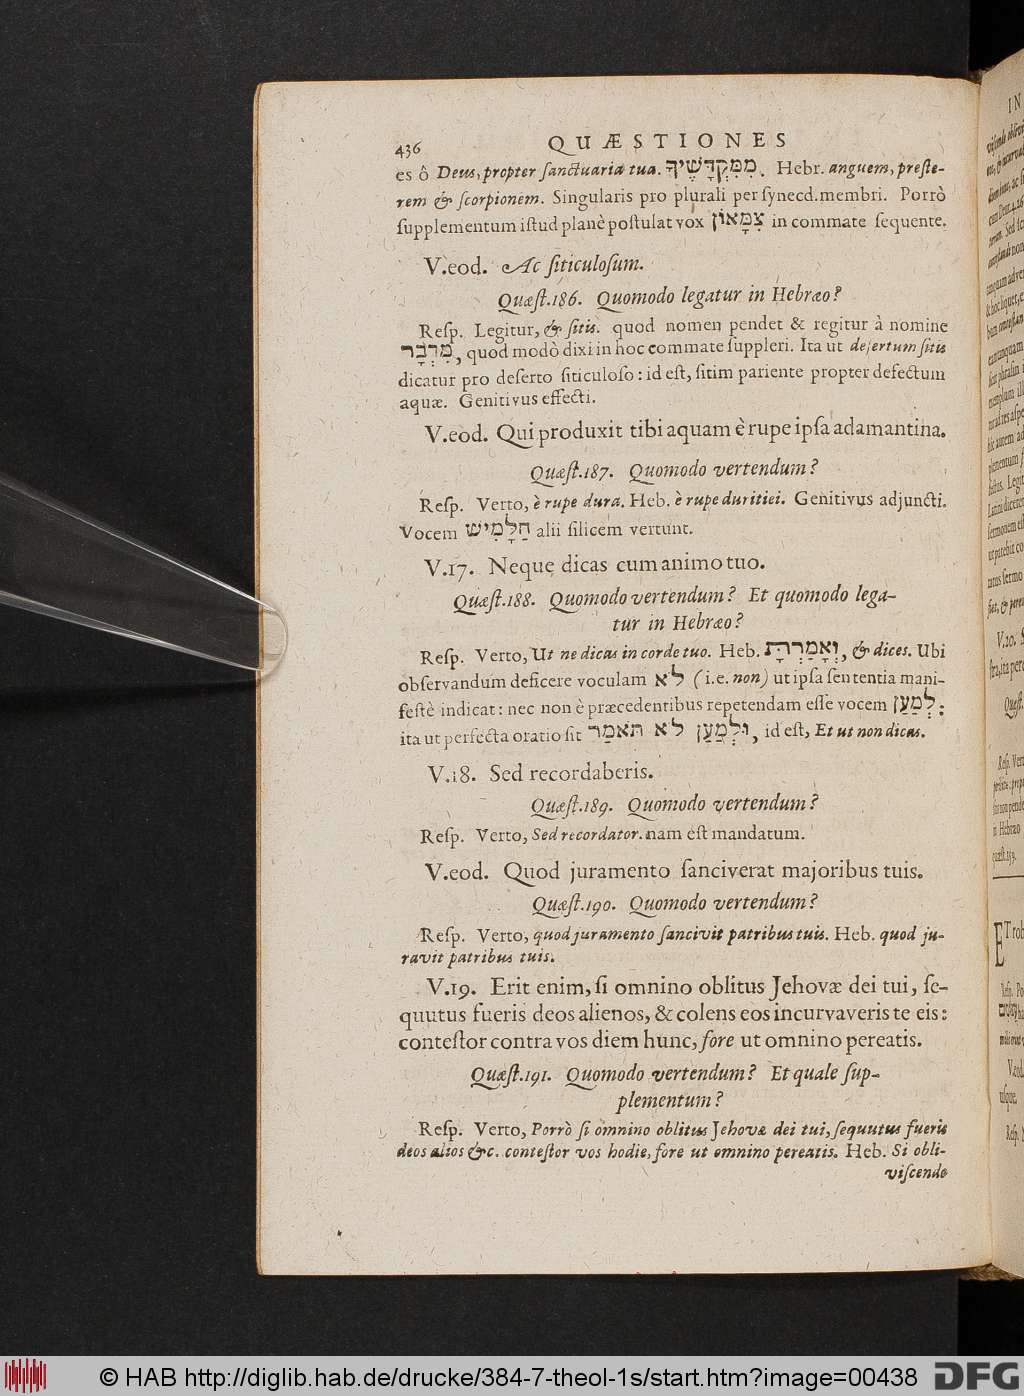 436 QUÆSTIONES
es ô Deus, propter ſanctuaria tua. מִמִּקְדָּשֶׁיךָ. Hebr. anguem, preſte-
rem & ſcorpionem. Singularis pro plurali per ſynecd. membri. Porrò
ſupplementum iſtud planè poſtulat vox צִמָּאוֹן in commate ſequente.
V. eod. Ac ſiticuloſum.
Quæſt. 186. Quomodo legatur in Hebræo?
Reſp. Legitur, & ſitis. quod nomen pendet & regitur à nomine
מִדְבָּר, quod modò dixi in hoc commate ſuppleri. Ita ut deſertum ſitis
dicatur pro deſerto ſiticuloſo: id eſt, ſitim pariente propter defectum
aquæ. Genitivus effecti.
V. eod. Qui produxit tibi aquam è rupe ipſa adamantina.
Quæſt. 187. Quomodo vertendum?
Reſp. Verto, è rupe dura. Heb. è rupe duritiei. Genitivus adjuncti.
Vocem חַלָּמִישׁ alii ſilicem vertunt.
V. 17. Neque dicas cum animo tuo.
Quæſt. 188. Quomodo vertendum? Et quomodo lega-
tur in Hebræo?
Reſp. Verto, Ut ne dicas in corde tuo. Heb. וְאָמַרְתָּ, & dices. Ubi
obſervandum deficere voculam לֹא (i.e. non) ut ipſa ſententia mani-
feſtè indicat: nec non è præcedentibus repetendam eſſe vocem לְמַעַן:
ita ut perfecta oratio ſit וּלְמַעַן לֹא תֹאמַר, id eſt, Et ut non dicas.
V. 18. Sed recordaberis.
Quæſt. 189. Quomodo vertendum?
Reſp. Verto, Sed recordator. nam eſt mandatum.
V. eod. Quod juramento ſanciverat majoribus tuis.
Quæſt. 190. Quomodo vertendum?
Reſp. Verto, quod juramento ſancivit patribus tuis. Heb. quod ju-
ravit patribus tuis.
V. 19. Erit enim, ſi omnino oblitus Jehovæ dei tui, ſe-
quutus fueris deos alienos, & colens eos incurvaveris te eis:
conteſtor contra vos diem hunc, fore ut omnino pereatis.
Quæſt. 191. Quomodo vertendum? Et quale ſup-
plementum?
Reſp. Verto, Porrò ſi omnino oblitus Jehovæ dei tui, ſequutus fueris
deos alios &c. conteſtor vos hodie, fore ut omnino pereatis. Heb. Si obli-
viſcendo
© HAB http://diglib.hab.de/drucke/384-7-theol-1s/start.htm?image=00438
DFG